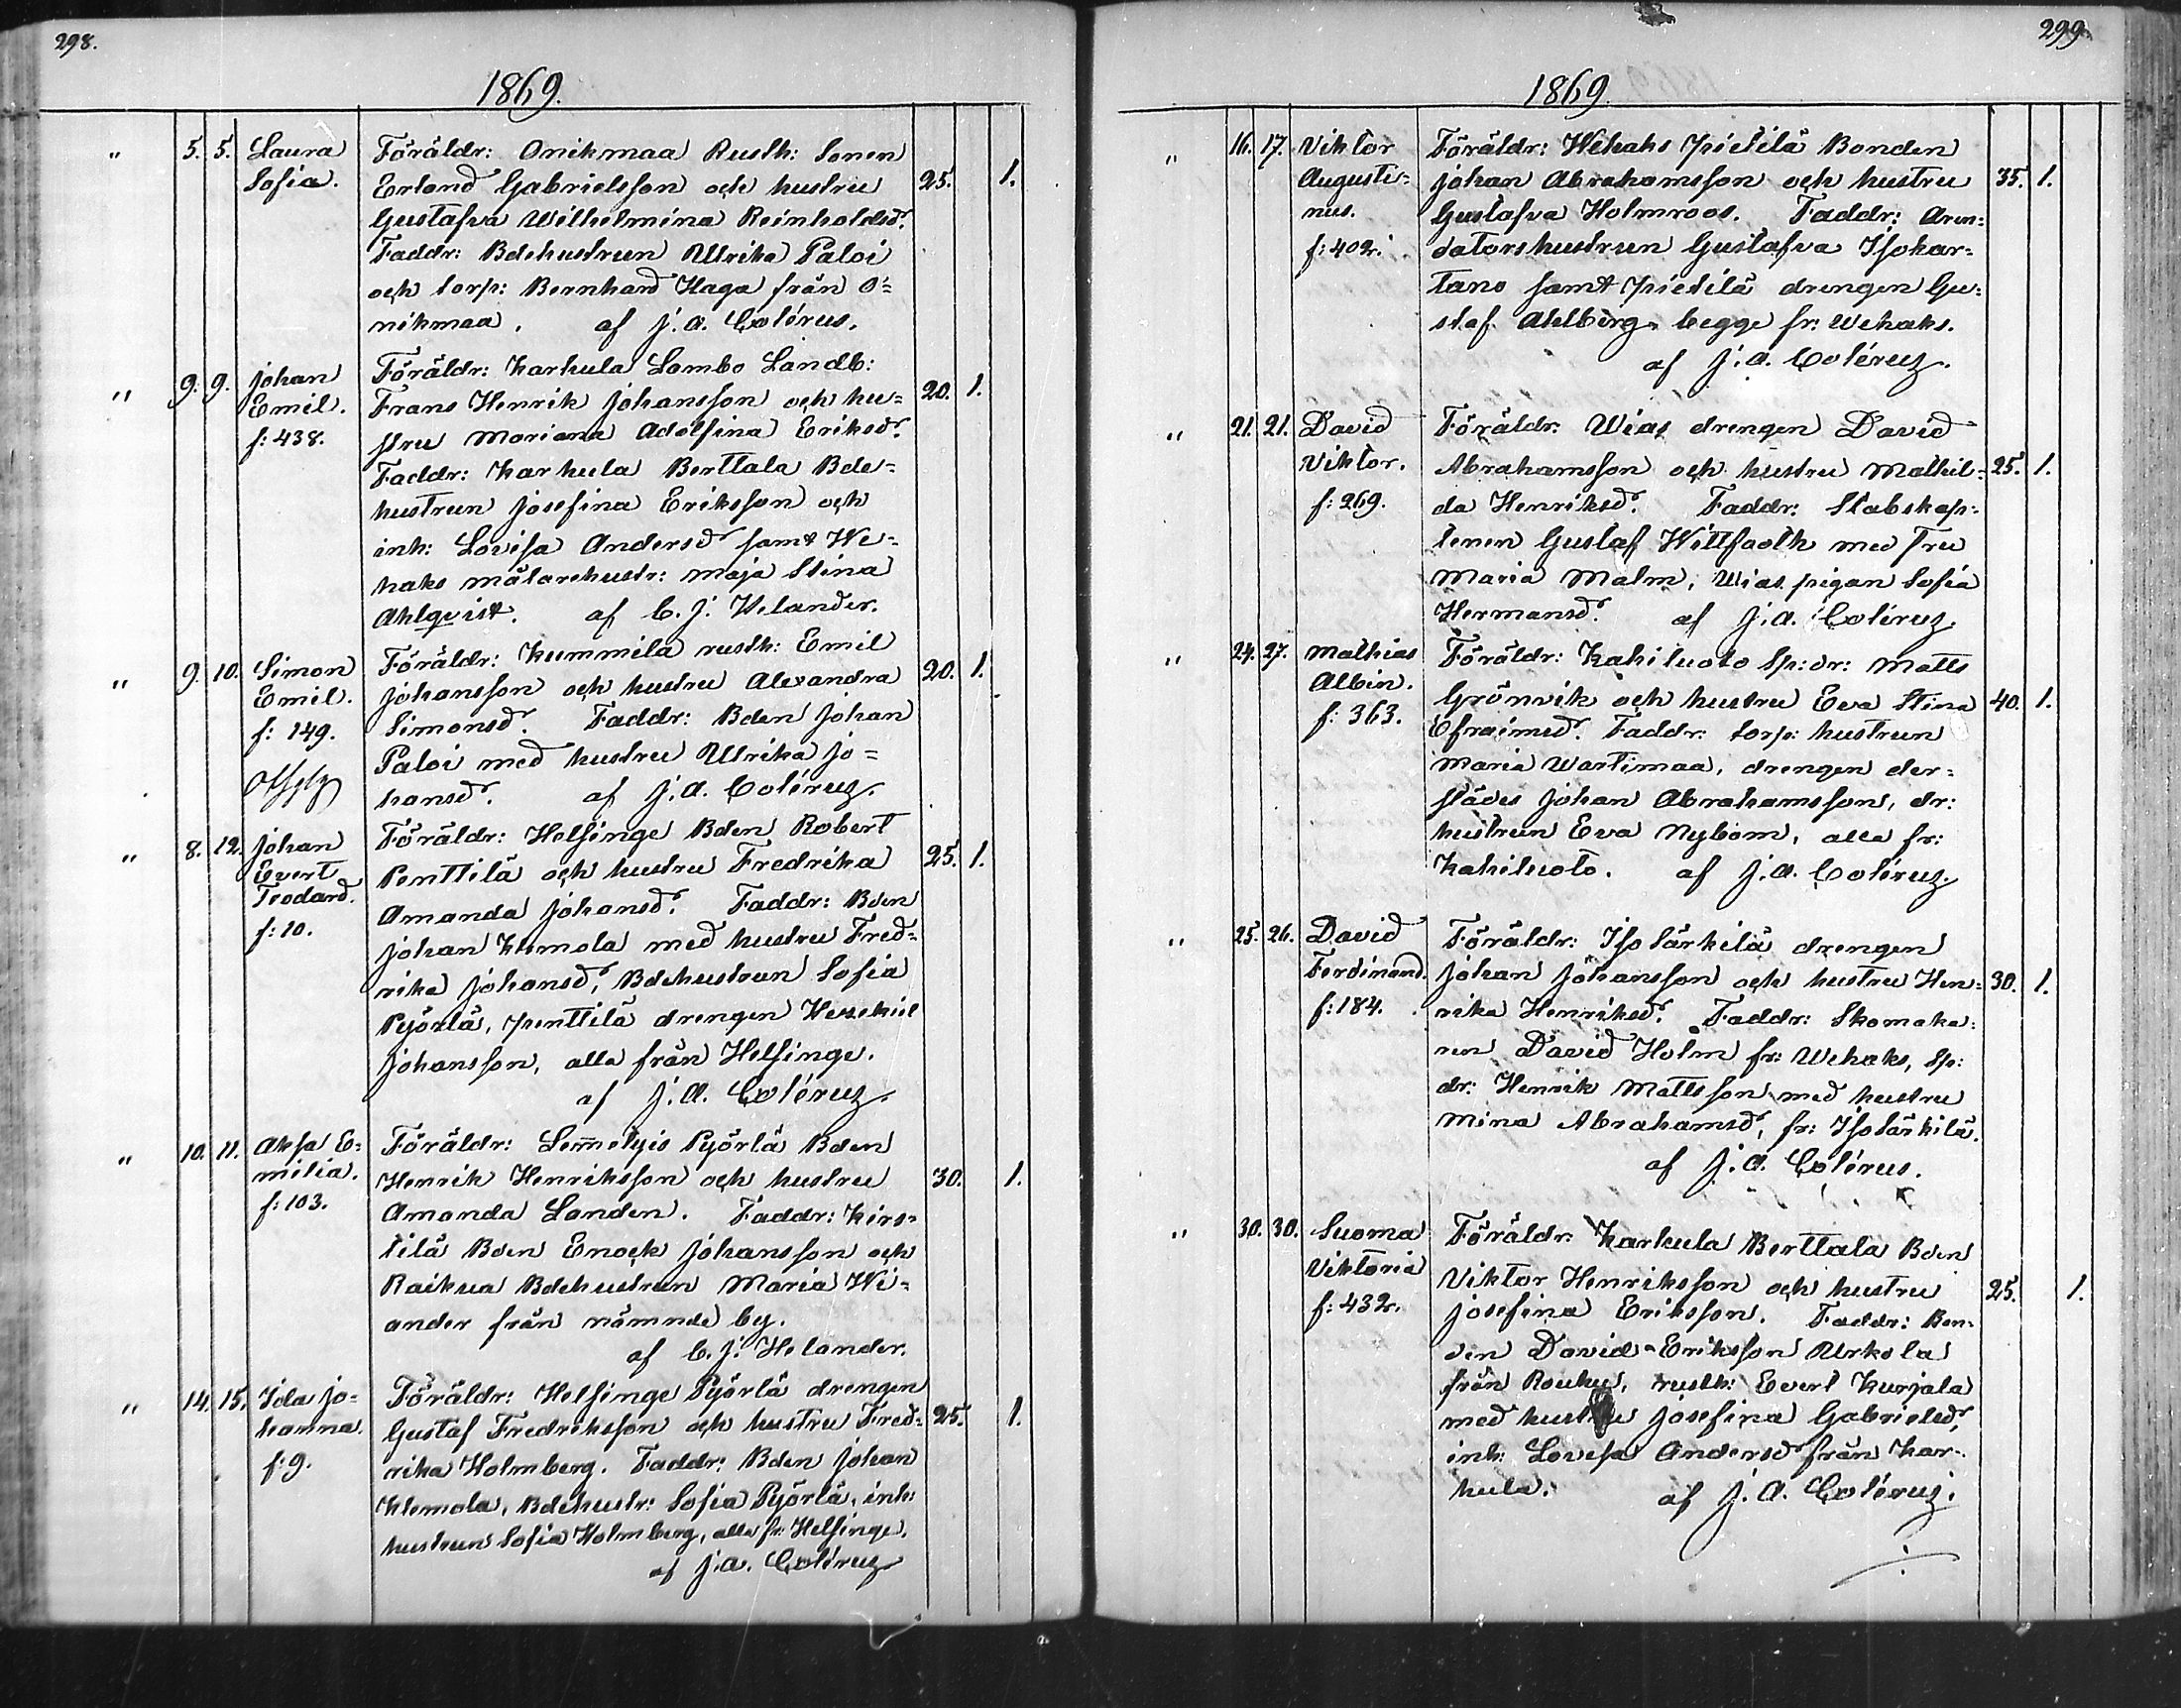 298.
1869.
" 5. 5. Laura Föräldr: Onikmaa Rusth: Sonen
Sofia. Erland Gabrielsson och hustru 25. 1.
Gustafva Wilhelmina Reinholdsdr.
Faddr: Bdehustrun Ulrika Paloi
och torp: Bernhard Haga från O=
nikmaa. af J. A. Colérus.
" 9. 9. Johan Föräldr: Karhula Lambo Landb:
Emil. Frans Henrik Johansson och hu= 20. 1.
f: 438. stru Mariana Adolfina Eriksdr.
Faddr: Karhula Berttala Bde=
hustrun Josefina Eriksson och
inh: Lovisa Andersdr samt We=
haks målarehustr: Maja Stina
Ahlqvist. af C. J. Helander.
" 9. 10. Simon Föräldr: Kummila rusth: Emil
Emil. Johansson och hustru Alexandra 20. 1.
f: 149. Simonsdr. Faddr: Bden Johan
Paloi med hustru Ulrika Jo=
hansdr. af J. A. Colérus.
" 8. 12. Johan Föräldr: Helsinge Bden Robert
Evert Penttilä och hustru Fredrika 25. 1.
Teodard. Amanda Johansdr. Faddr: Bden
f: 10. Johan Klemola med hustru Fred=
rika Johansdr, Bdehustrun Sofia
Pyörlä, Penttilä drengen Hesekiel
Johansson, alla från Helsinge.
af J. A. Colérus.
" 10. 11. Aksa E= Föräldr: Lem̅elyis Pyörlä Bden
milia. Henrik Henriksson och hustru 30. 1.
f: 103. Amanda Landen. Faddr: Kirs=
tilä Bden Enock Johansson och
Raikua Bdehustrun Maria Wi=
ander från nämnde by.
af C. J. Helander.
" 14. 15. Ida Jo= Föräldr: Helsinge Pyörlä drengen
hanna. Gustaf Fredriksson och hustru Fred= 25. 1.
f: 9. rika Holmberg. Faddr: Bden Johan
Klemola, Bdehustr: Sofia Pyörlä, inh:
hustrun Sofia Holmberg, alla fr: Helsinge.
af J. A. Colérus
299.
1869.
" 16. 17. Viktor Föräldr: Wehaks Pietilä Bonden
Augusti= Johan Abrahamsson och hustru 35. 1.
nus. Gustafva Holmroos. Faddr: Aren=
f: 402. datorshustrun Gustafva Isokar=
tano samt Pietilä drengen Gu=
staf Ahlberg, begge fr: Wehaks.
af J. A. Colérus.
" 21. 21. David Föräldr: Wias drengen David
Viktor. Abrahamsson och hustru Mathil= 25. 1.
f: 269. da Henriksdr. Faddr: Stabskap=
tenen Gustaf Wittfooth med Fru
Maria Malm, Wias pigan Sofia
Hermansdr. af J. A. Colérus.
" 24. 27. Mathias Föräldr: Kahiluoto Sp: dr: Matts
Albin. Grönvik och hustru Eva Stina 40. 1.
f: 363. Efraimsdr. Faddr: torp: hustrun
Maria Wartimaa, drengen der=
städes Johan Abrahamsson, dr:
hustrun Eva Nybom, alla fr:
Kahiluoto. af J. A. Colérus.
" 25. 26. David Föräldr: Iso Särkilä drengen
Ferdinand. Johan Johansson och hustru Hen= 30. 1.
f: 184. rika Henriksdr. Faddr: Skomaka=
ren David Holm fr: Wehaks, Sp:
dr: Henrik Mattsson med hustru
Mina Abrahamsdr, fr: Iso Särkilä.
af J. A. Colérus.
" 30. 30. Suoma Föräldr: Karhula Berttala Bden
Viktoria Viktor Henriksson och hustru 25. 1.
f: 432. Josefina Eriksson. Faddr: Bon=
den David Eriksson Urkola
från Rouhu, rusth: Evert Kurjala
med hustru Josefina Gabrielsdr,
inh: Lovisa Andersdr från Kar=
hula. af J. A. Colérus.